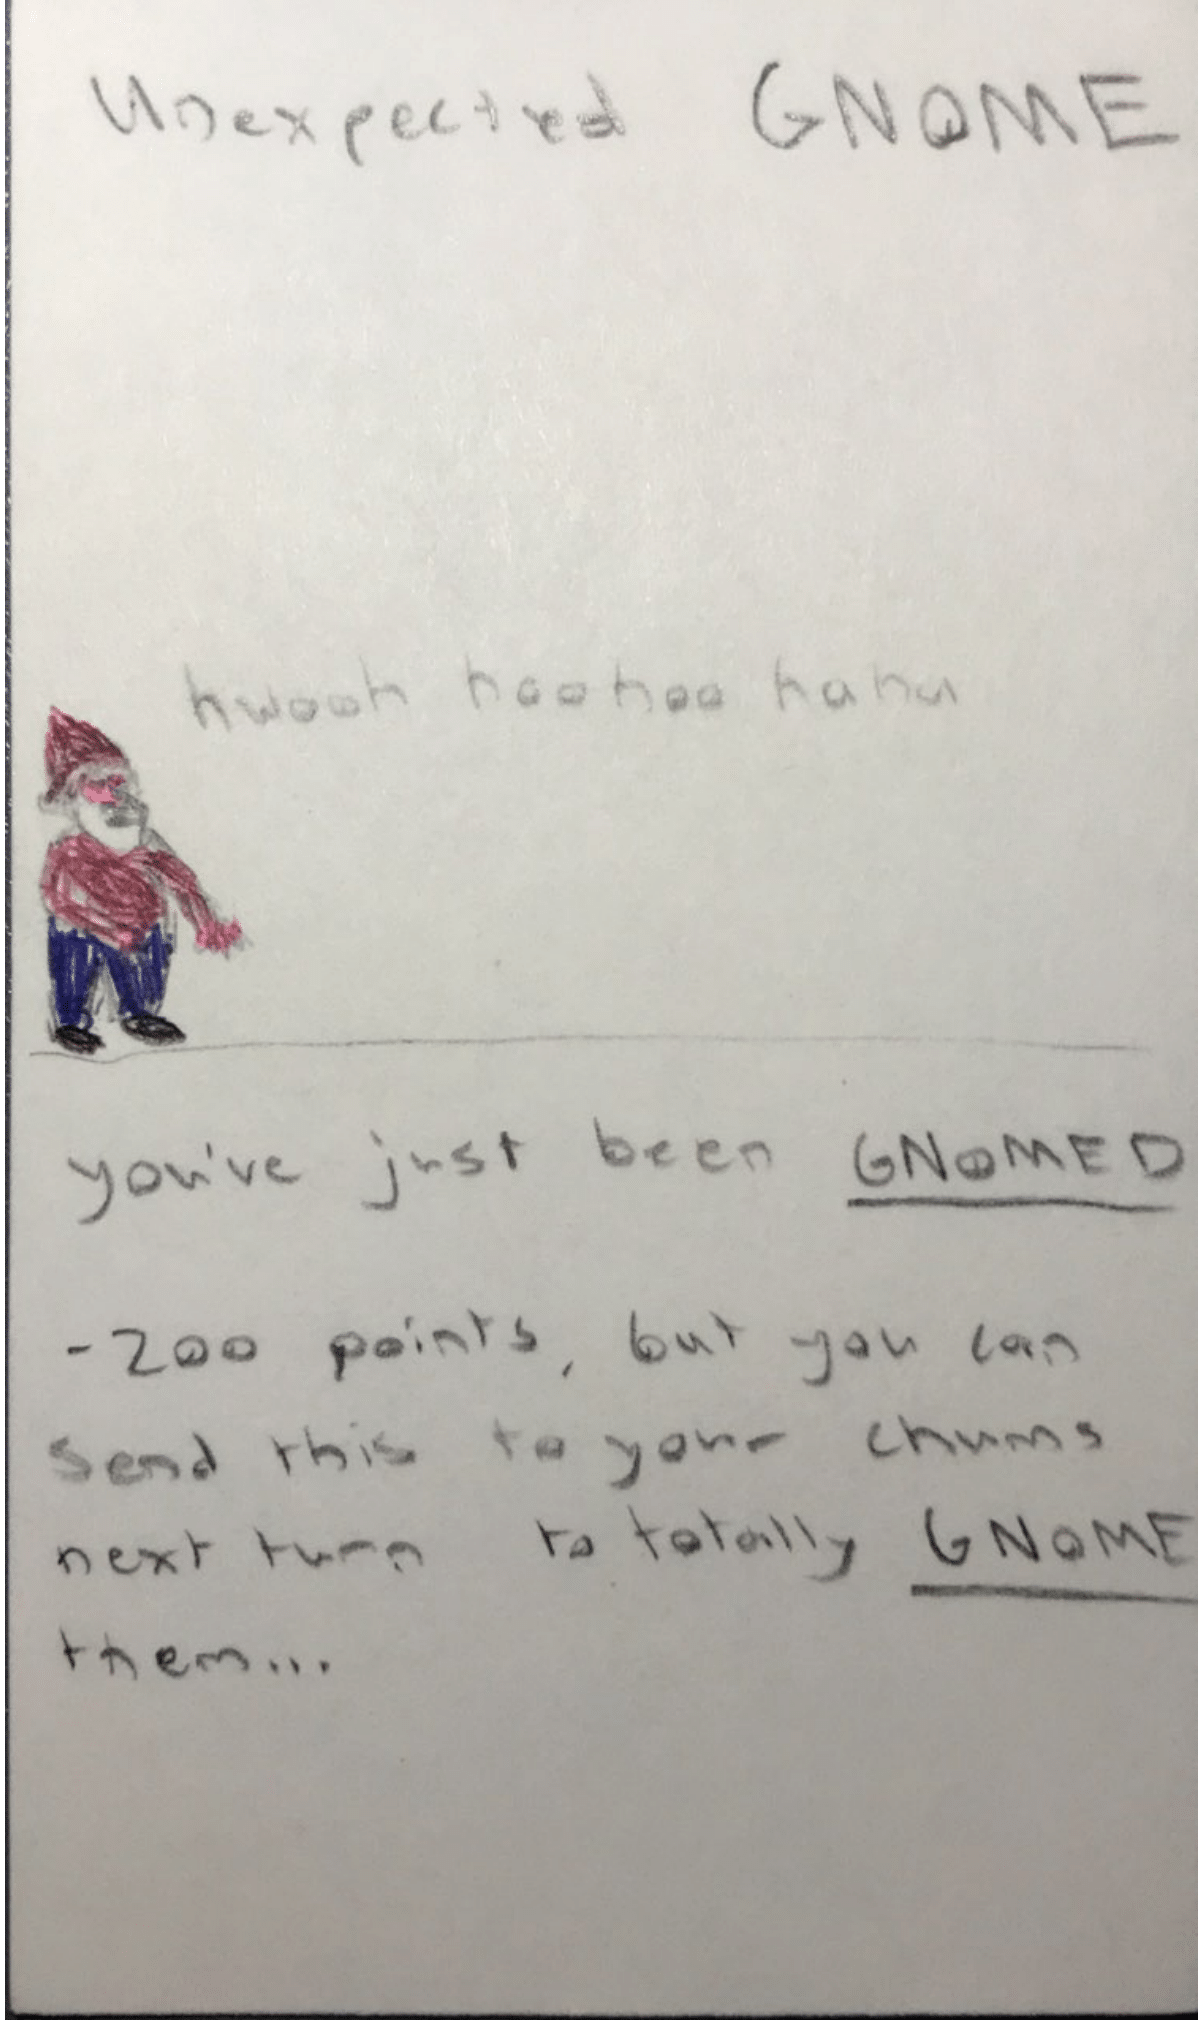 Unexpected GNOME
hwooh hoohoo haha
you've just been GNOMED
-200 points, but you can
send this to your chums
next turn to totally GNOME
them...